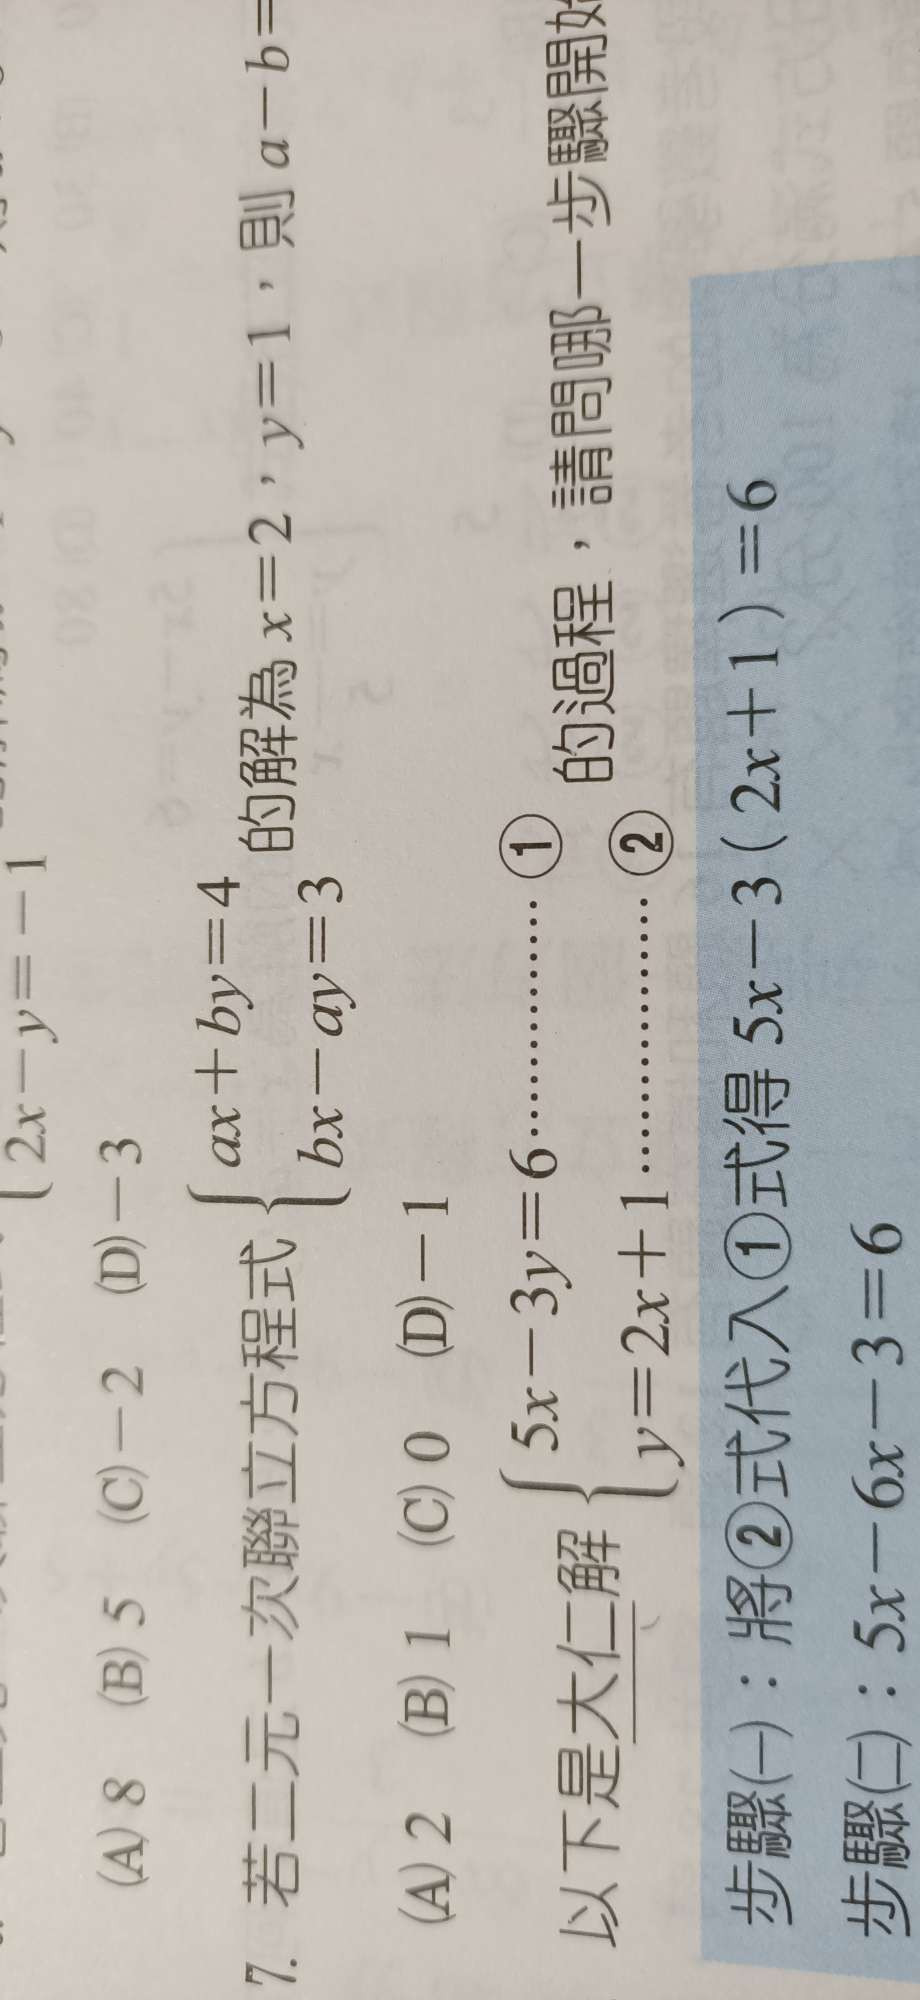 2x－y＝－1
(A) 8 (B) 5 (C)－2 (D)－3
7. 若二元一次聯立方程式 { ax＋by＝4
bx－ay＝3 的解為 x＝2，y＝1，則 a－b＝
(A) 2 (B) 1 (C) 0 (D)－1
以下是大仁解 { 5x－3y＝6…………①
y＝2x＋1……………② 的過程，請問哪一步驟開始
步驟㈠：將②式代入①式得 5x－3（2x＋1）＝6
步驟㈡：5x－6x－3＝6